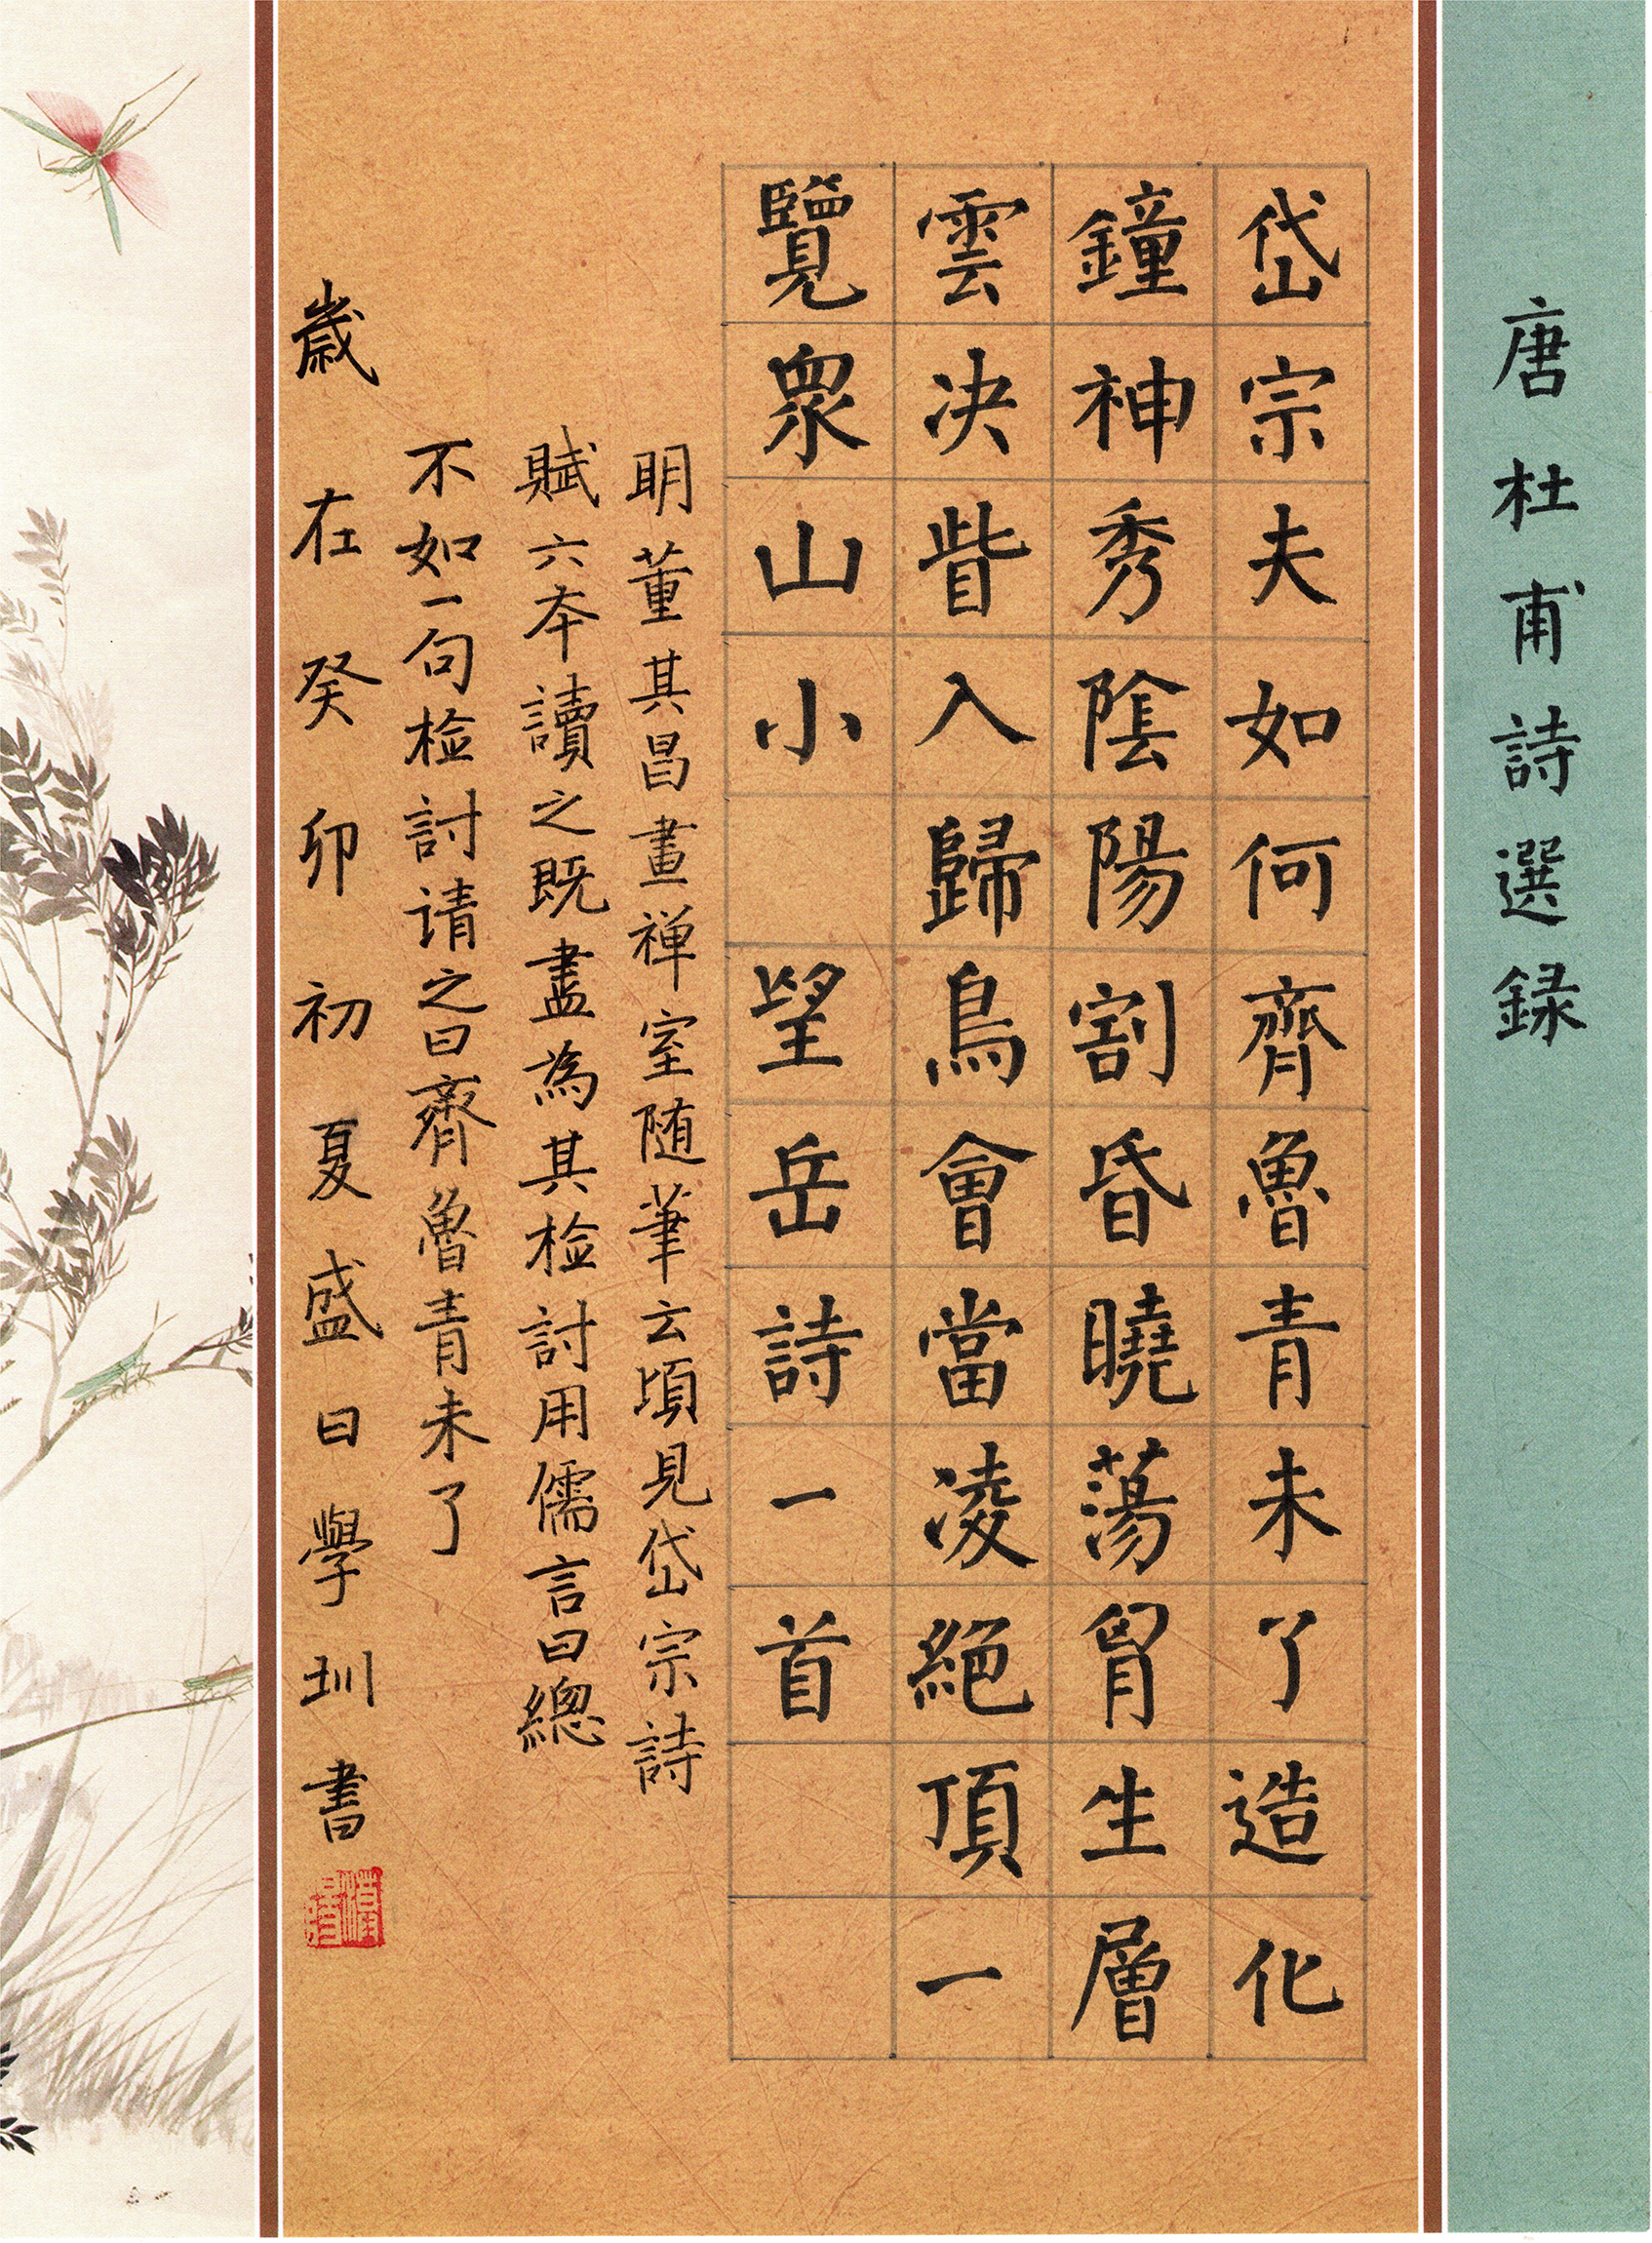 唐杜甫詩選録
岱宗夫如何齊魯青未了造化
鐘神秀陰陽割昏曉蕩胷生層
雲决眥入歸鳥會當凌絕頂一
覽眾山小 望岳詩一首
明董其昌畫禅室随筆云頃見岱宗詩
賦六本讀之既盡為其检討用儒言曰總
不如一句检討请之曰齊魯青未了
歲在癸卯初夏盛日學圳書